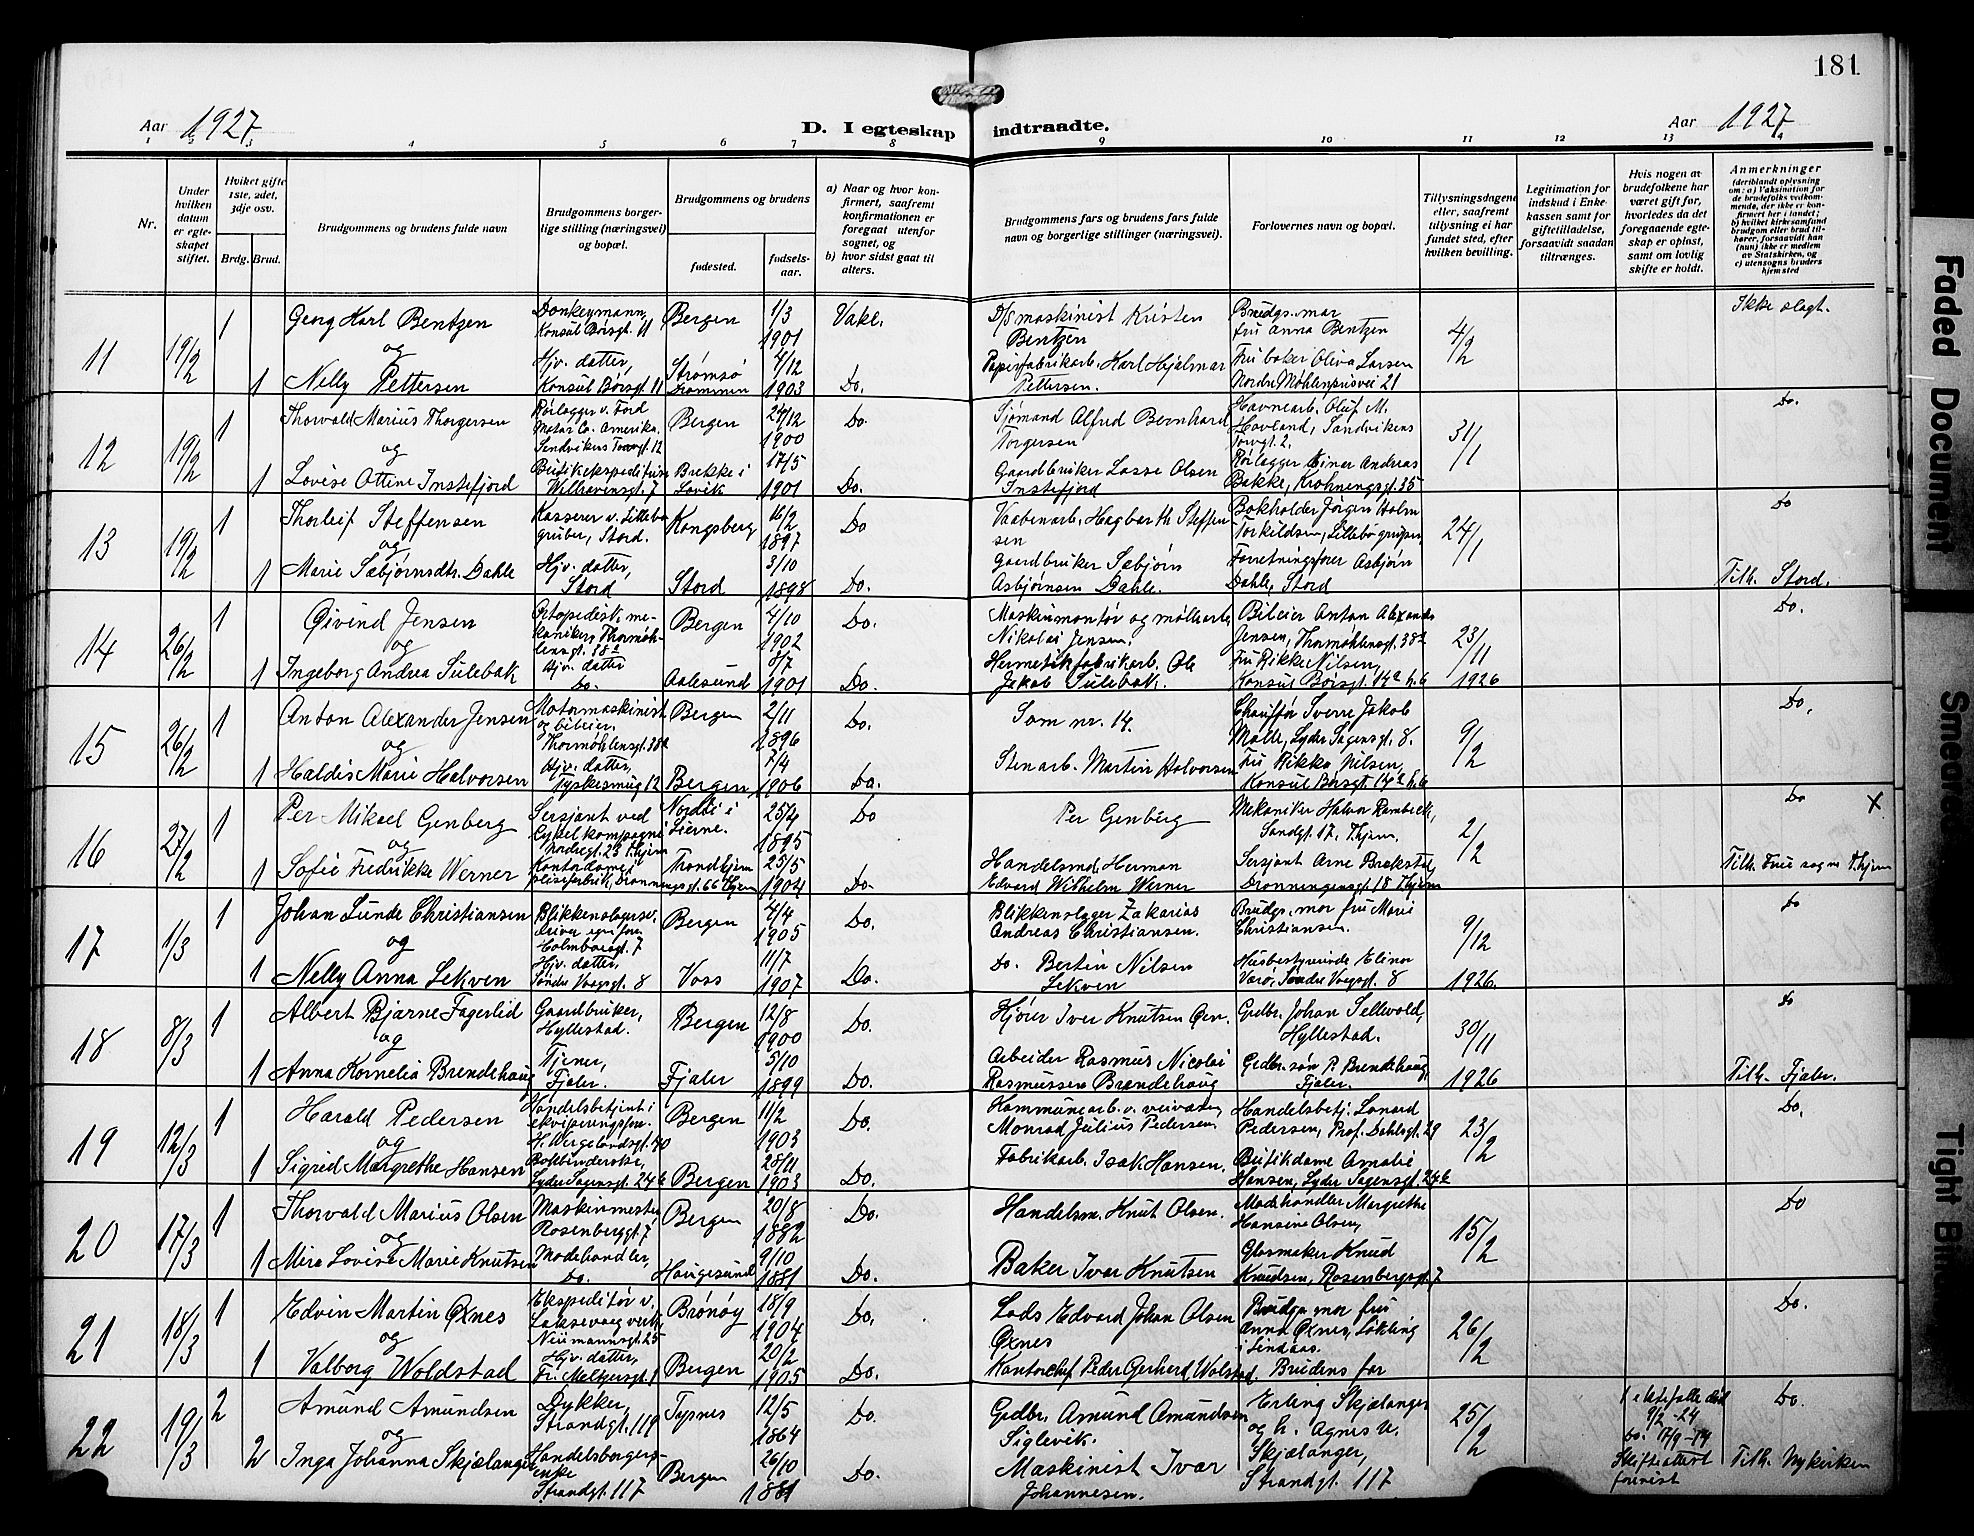 181
Aar 1927
D. I egteskap indtraadte.
Aar 1927
1 2 3 4 5 6 7 8 9 10 11 12 13 14
Nr.
Under hvilken datum er egteskapet stiftet.
Hviket gifte 1ste, 2det, 3dje osv.
Brdg. Brud.
Brudgommens og brudens fulde navn
Brudgommens borgerlige stilling (næringsvei) og bopæl.
Brudgommens og brudens
fødested.
fødselsaar.
a) Naar og hvor konfirmert, saafremt konfirmationen er foregaat utenfor sognet, og
b) hvor sidst gaat til alters.
Brudgommens fars og brudens fars fulde navn og borgerlige stillinger (næringsvei).
Forlovernes navn og bopæl.
Tillysningsdagene eller, saafremt tillysning ei har fundet sted, efter hvilken bevilling.
Legitimation for indskud i Enkekassen samt for giftetilladelse, forsaavidt saadan tiltrænges.
Hvis nogen av brudefolkene har været gift for, hvorledes da det foregaaende egteskap er opløst, samt om lovlig skifte er holdt.
Anmerkninger
(deriblandt oplysning om: a) Vaksination for de brudefolks vedkommende, der ikke er konfirmert her i landet; b) hvilket kirkesamfund brudgom eller brud tilhører, forsaavidt han (hun) ikke er medlem av Statskirken, og c) utensogns bruders hjemsted
11 19/2 1 Georg Karl Bentzen Donkeymann, Konsul Børsgt. 11 Bergen 1/3 1901 Vakc. D/S maskinist Kristen Bentzen Brudgs. mor fru Anna Bentzen 4/2 Ikke slagt.
og
1 Nelly Pettersen Hjv. datter, Konsul Børsgt. 11 Strømsø Drammen 4/12 1903 Do. Papirfabrikarb. Karl Hjalmar Pettersen. Fru baker Oliva Larsen Nordre Møhlenprisvei 21
12 19/2 1 Thorvald Marius Thorgersen Rørlægger v. Ford Motor Co. Amerika. Sandvikens Torvgt. 12 Bergen 27/12 1900 Do. Sjømand Alfred Bernhard Torgersen Havnearb. Oluf M. Hovland, Sandvikens Torvgt. 2, 31/1 Do.
og
1 Lovise Ottine Instefjord Butikekspeditrise Welhavensgt. 7 Brekke i Lavik 17/5 1901 Do. Gaardbruker Lasse Olsen Instefjord Rørlægger Einar Andreas Bakke, Kroningsgt. 35
13 19/2 1 Thorleif Steffensen Kasserer v. Lillebø gruber, Stord. Kongsberg 16/2 1897 Do Vaabenarb. Hagbarth Steffensen Bokholder Jørgen Holm Torkildsen, Lillebø gruber, 24/1 Do
og
1 Marie Sæbjørnsdtr. Dahle Hjv. datter, Stord Stord 3/10 1898 Do. Gaardbruker Sæbjørn Asbjørnsen Dahle. Forretningsfører Asbjørn Dahle, Stord Tilh. Stord.
14 26/2 1 Øivind Jensen Ortopedisk mekaniker, Thormøhlensgt. 38a Bergen 4/10 1902 Do. Maskinmontør og møllearb. Nikolai Jensen. Bileier Anton Alexander Jensen, Thormøhlensgt. 38a 23/11 1926 Do.
og
1 Ingeborg Andrea Sulebak Hjv. datter Do. Aalesund 8/7 1901 Do. Hermetikfabrikarb. Ole Jakob Sulebak. Fru Rikke Nilsen, Konsul Børsgt. 14a h.6
15 26/2 1 Anton Alexander Jensen Motormaskinist og bileier, Thormøhlensgt. 38a Bergen 2/11 1896 Do. Som nr. 14. Chauffør Sverre Jakob Malle, Lyder Sagensgt. 8. 9/2 Do.
og
1 Haldis Marie Halvorsen Hjv. datter, Tyskesmug 12 Bergen 7/4 1906 Do. Stenarb. Martin Halvorsen Fru Rikka Nilsen, Konsul Børsgt. 14a h.6
16 27/2 1 Per Mikael Genberg Sersjant ved Cykelkompagni Nordregt. 23 Thjem Nordli i Lierne. 25/4 1895 Do Per Genberg Mekaniker Halvor Rambeck, Sandgt. 17, Thjem. 2/2 Do X
og
1 Sofie Fredrikke Werner Kontordame Dronningsgt. 66 Thjem Trondhjem 25/5 1904 Do. Handelsmd. Herman Edvard Wilhelm Werner Sersjant Arne Brekstad, Dronningensgt. 18 Thjem Tilh. Frue sogn Thjem
17 1/3 1 Johan Lunde Christiansen Blikkenslagersv. Holmboesgt. 7 Bergen 4/4 1905 Do. Blikkenslager Zakarias Andreas Christiansen. Brudgs. mor fru Marie Christiansen. 9/12 1926. Do
og
1 Nelly Anna Lekven Hjv. datter, Søndre Voegsgt. 8 Voss 11/7 1907 Do. Do. Bertin Nilsen Lekven Husbestyrerinde Elina Varø, Søndre Voegsgt. 8
18 8/3 1 Albert Bjarne Fagerlid Gaardbruker, Hyllestad. Bergen 12/8 1900 Do. Kjører Iver Knutsen Øen. Grdbr. Johan Sellevold, Hyllestad. 30/11 1926 Do
og
1 Anna Kornelia Brendehaug Tjener, Fjaler. Fjaler 5/10 1899 Do. Arbeider Rasmus Nicolai Rasmussen Brendehaug Grdbr. søn P. Brendehaug, Fjaler. Tilh. Fjaler.
19 12/3 1 Harald Pedersen Handelsbetjent i ekviperingsfor. H. Wergelandsgt. 40 Bergen 11/2 1903 Do. Kommunearb. v. veivæsen Monrad Julius Pedersen. Handelsbetj. Lonard Pedersen, Prof. Dahlsgt. 29 23/2 Do.
og
1 Sigrid Margrethe Hansen Bokbinderske, Lyder Sagensgt. 24b Bergen 28/11 1903 Do. Fabrikarb. Isak Hansen. Butikdame Amalie Hansen, Lyder Sagensgt. 24b
20 17/3 1 Thorvald Marius Olsen Maskinmester Rosenberggt. 7 Bergen 20/8 1882 Do. Handelsm. Knut Olsen. Modehandler Margrethe Hansine Olsen, 15/2 Do
og
1 Mira Lovise Marie Knutsen Modehandler, Do. Haugesund 9/10 1881 Do. Baker Ivar Knutsen Glasmaker Knud Knudsen, Rosenbergsgt. 7
21 18/3 1 Edvin Martin Øxnes Ekspeditør v. Laksevaag verk, Neumannsgt. 25 Brønøy 18/9 1904 Do. Lods Edvard Johan Olsen Øxnes Brudgs. mor fru Anna Øxnes, i Lindaas. 26/2 Do.
og
1 Valborg Woldstad Hjv. datter, Fr. Meltzersgt. 1 Bergen 20/2 1905 Do. Kontorchef Peder Gerhard Wolstad. Brudens far
22 19/3 2 Amund Amundsen Dykker, Strandgt. 119 Tysnes 12/5 1864 Do. Grdbr. Amund Amundsen Siglevik. Erling Skjælanger og h. Agnes u. Skjælanger, Strandgt. 117 25/2 1 ektefælle død 9/2 -24 Do. 17/9 -14 Skifteattest forevist Do.
og
2 Inga Johanna Skjælanger Handelsborgers enke Strandgt. 117 Bergen 26/10 1881 Do. Maskinist Ivar Johannesen. Tilh. Nykirken
Faded Document
Smeared
Tight Bind